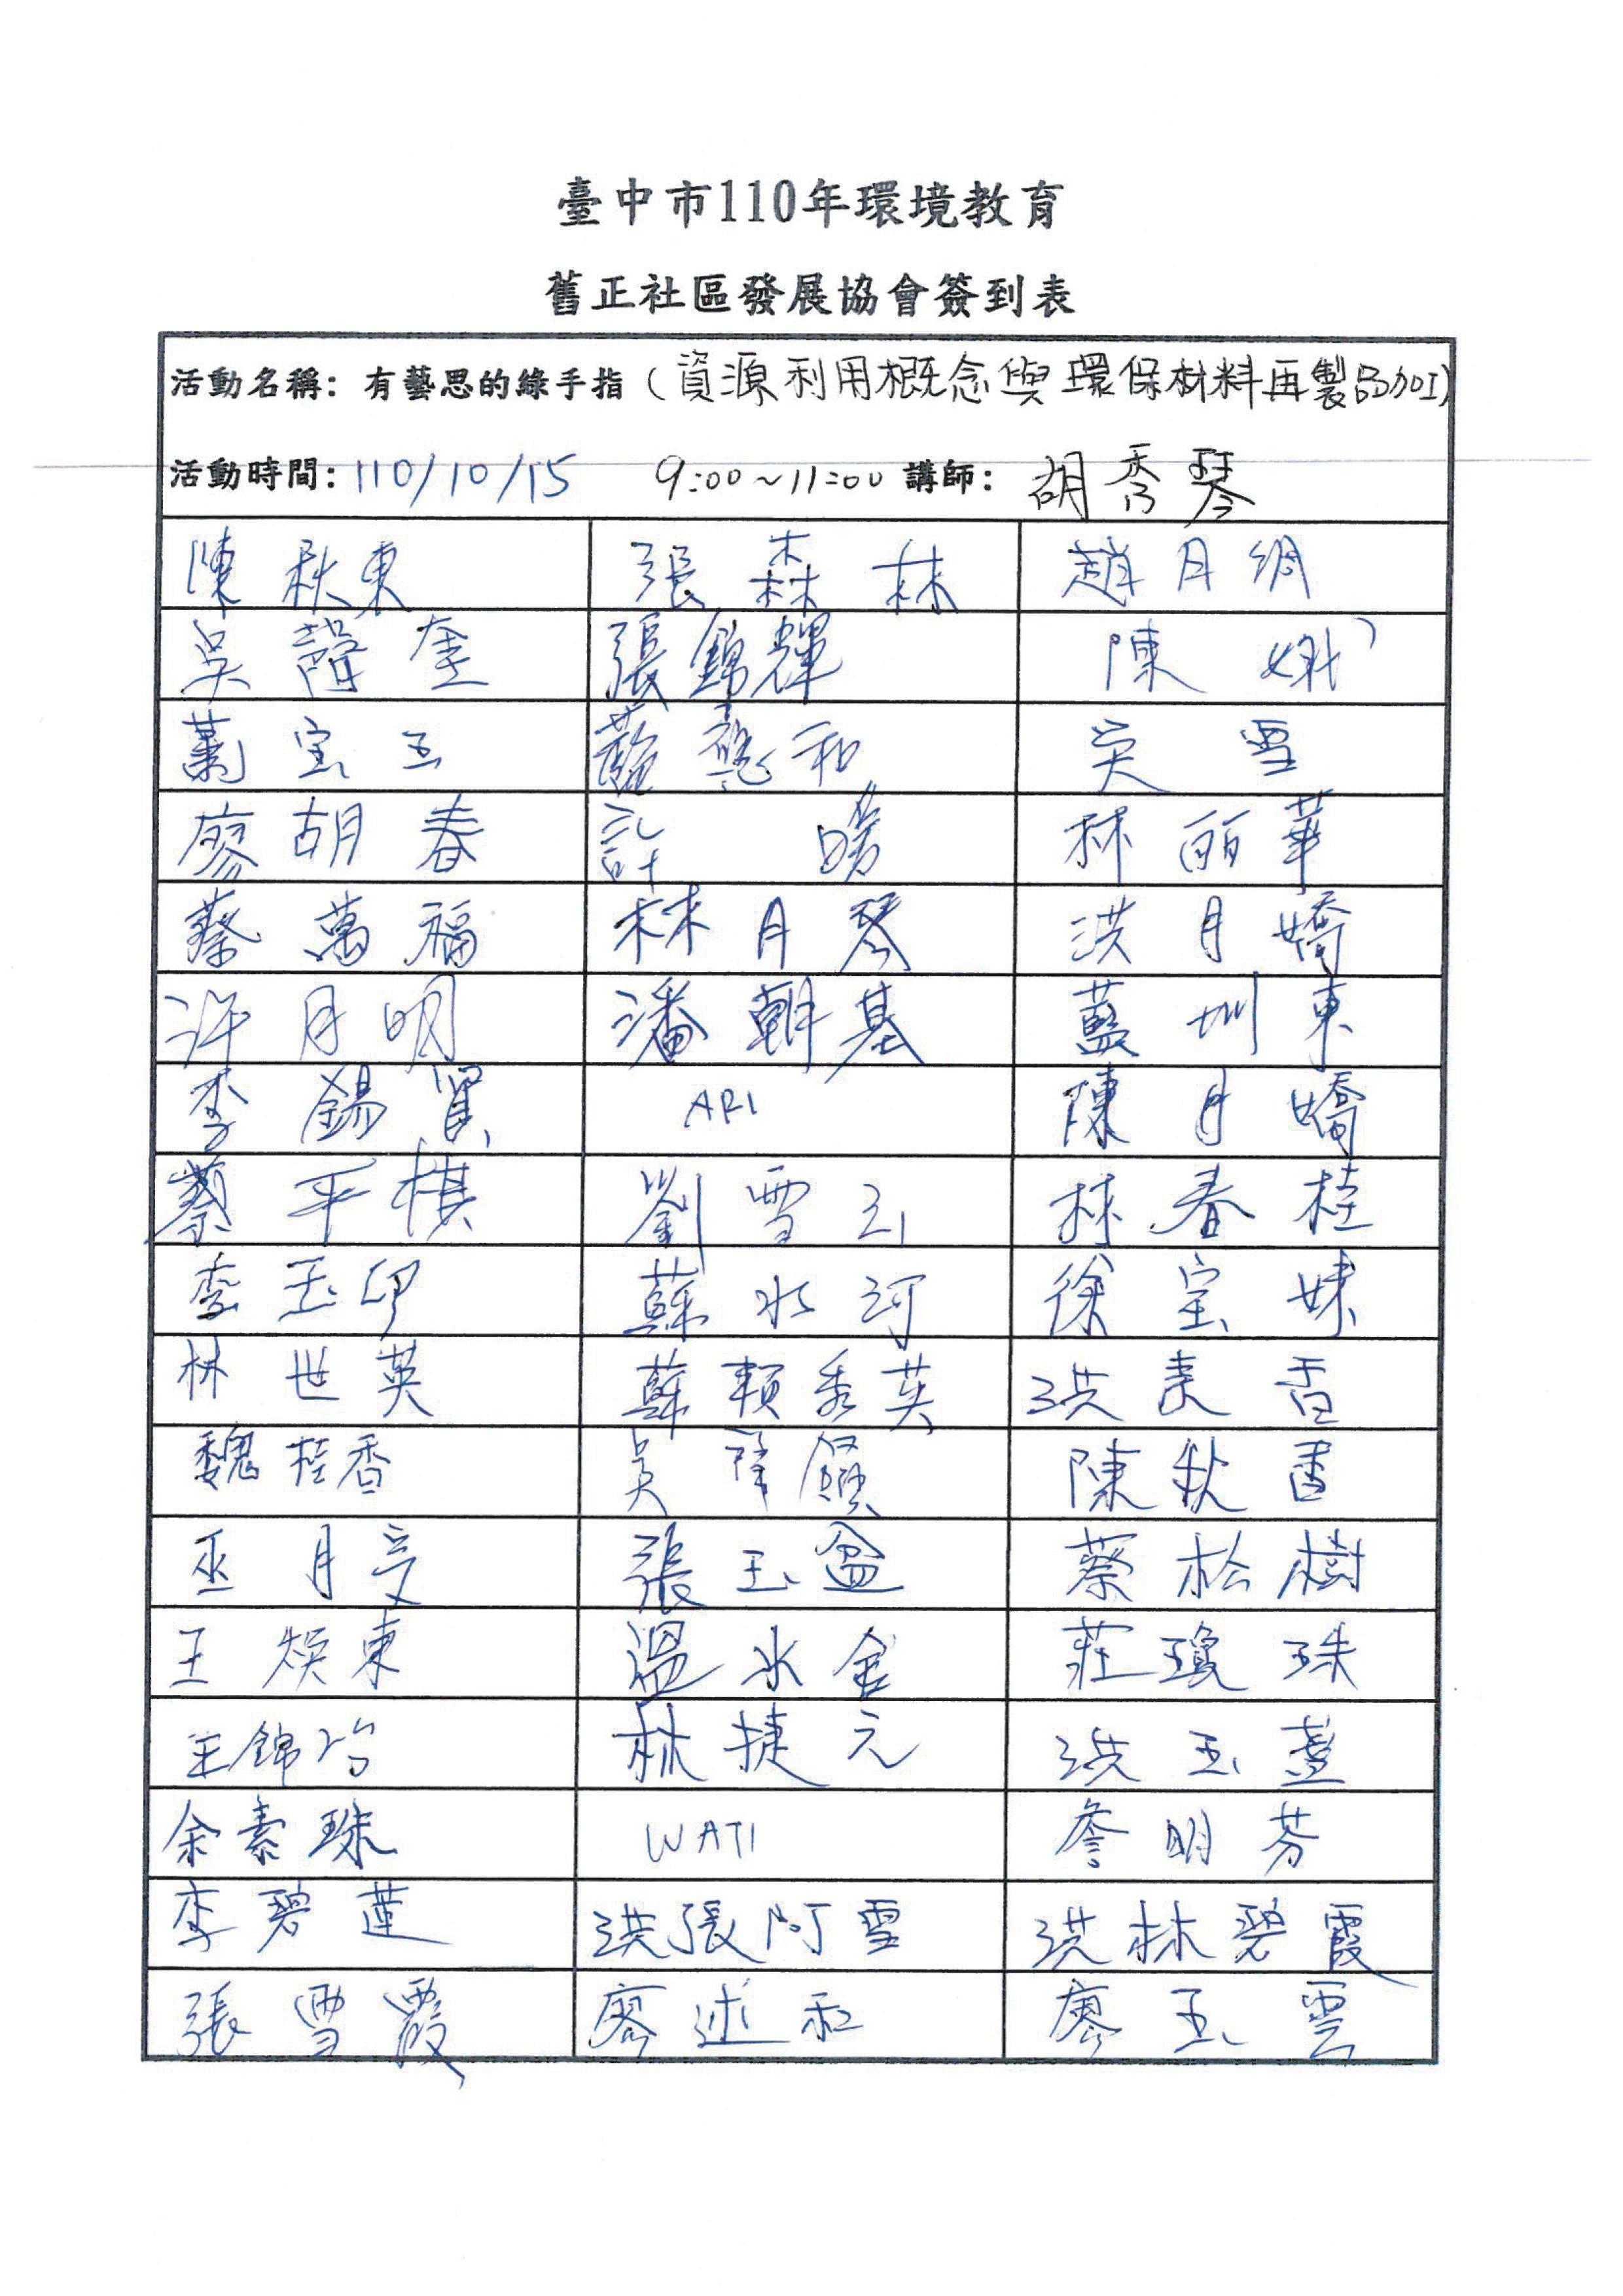 臺中市110年環境教育
舊正社區發展協會簽到表
活動名稱：有藝思的綠手指（資源利用概念與環保材料再製品加工）
活動時間：110/10/15 9:00~11:00 講師：胡秀琴
陳秋東 張森林 趙月綢
吳聲奎 張錦輝 陳娥
蕭宝玉 和 吳雪
廖胡春 許 林丽華
蔡萬福 林月琴 洪月嬌
许月明 潘朝基 藍圳東
李錫 ARI 陳月嬌
蔡平棋 劉雪玉 林春桂
李玉印 蘇水河 徐宝妹
林世英 蘇賴秀英 洪素香
魏桂香 吳 陳秋香
巫月 張玉盆 蔡松樹
王煥東 溫水金 莊瓊珠
王錦 林捷元 洪玉盞
余素珠 WATI 詹明芬
李碧蓮 洪張阿雪 洪林碧霞
張雪霞 廖述和 廖玉雲